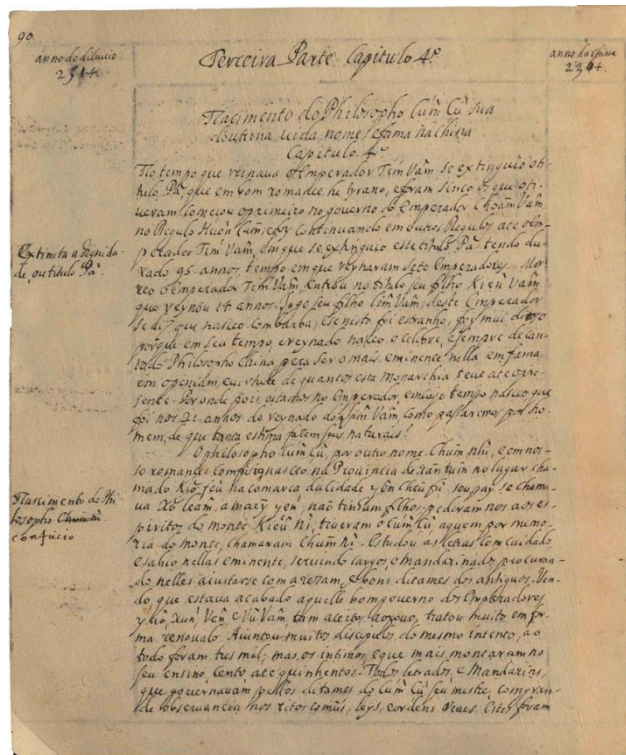 90.
anno do diluuio
2514.
Terceira Parte Capitulo 4º
anno da China
2394.
Nacimento do Philosopho Cum Cù sua
doutrina, uida, nome, e extima na China
Capitulo. 4º
No tempo que reinaua o Emperador Tim Vâm se extinguio o ti-
tulo Pá, que em bom romance he tyrano, e foram sinco os que o ti-
ueram. Começou o primeiro no governo do Emperador
no Regulo Huôn Cum, e continuando em outros Regulos ate o Em-
perador Tim Vâm, em que se extinguio este titulo Pá, tendo du-
rado 95 annos, tempo em que reynaram sete Emperadores. Mor-
reo o Emperador Tim Vâm, entrou no titulo seu filho Kieù Vâm
que reynou 14 annos. Logo seu filho Lîm Vâm; deste Emperador
se diz que naceo com barba; e se nisto foi estranho, foy mui ditozo
porque em seu tempo, e reynado naceo o celibre, e sempre decan-
tado Philosopho China, pera ser o mais eminente nella em fama,
em openiam, e uirtude de quantos esta monarchia teue ate o pre-
sente. Por onde
foi nos 21 anhos do reynado
mem, de que tanta estima fazem seus naturais.
Extinta a dignida-
de, ou titulo Pá.
O philosopho Cum Cù, por outro nome Chum nhî, e em nos-
so romance Comfuzio naceo na Prouincia de Xan tum no lugar cha-
mado na comarca da cidade Yen cheu fù, seu pay se chama-
ua Xó leâm, a maÿ yen, não tinham filhos, pediram nos aos es-
piritos do monte Kieû nî, tiueram o Cum Cù, a quem por memo-
ria do monte, chamaram Chum nî. Estudou as letras com cuidado
e sahio nellas eminente, seruindo cargos, e mandarinados, procuran-
do nelles aiustarse com a rezam, e bons dictames dos antiguos. Ven-
do que estava acabado aquelle bom governo dos Emperadores
Yâo, Xun, Ven e Vù Vâm, tam aceito, ao pouo, tratou muito em for-
ma renoualo. Aiuntou muitos discipulos do mesmo intento, ao
todo foram tres mil; mas, os intimos, e que mais montaram no
seu ensino, cento, ate quinhentos. Todos letrados, e Mandarins,
que gouernauam pellos dictames do Cum Cù seu mestre, com gran-
de obseruancia nos ritos comûs, leys, e ordens Reaes. Estes foram
Nascimento do Phi-
losopho Chum nî.
confucio